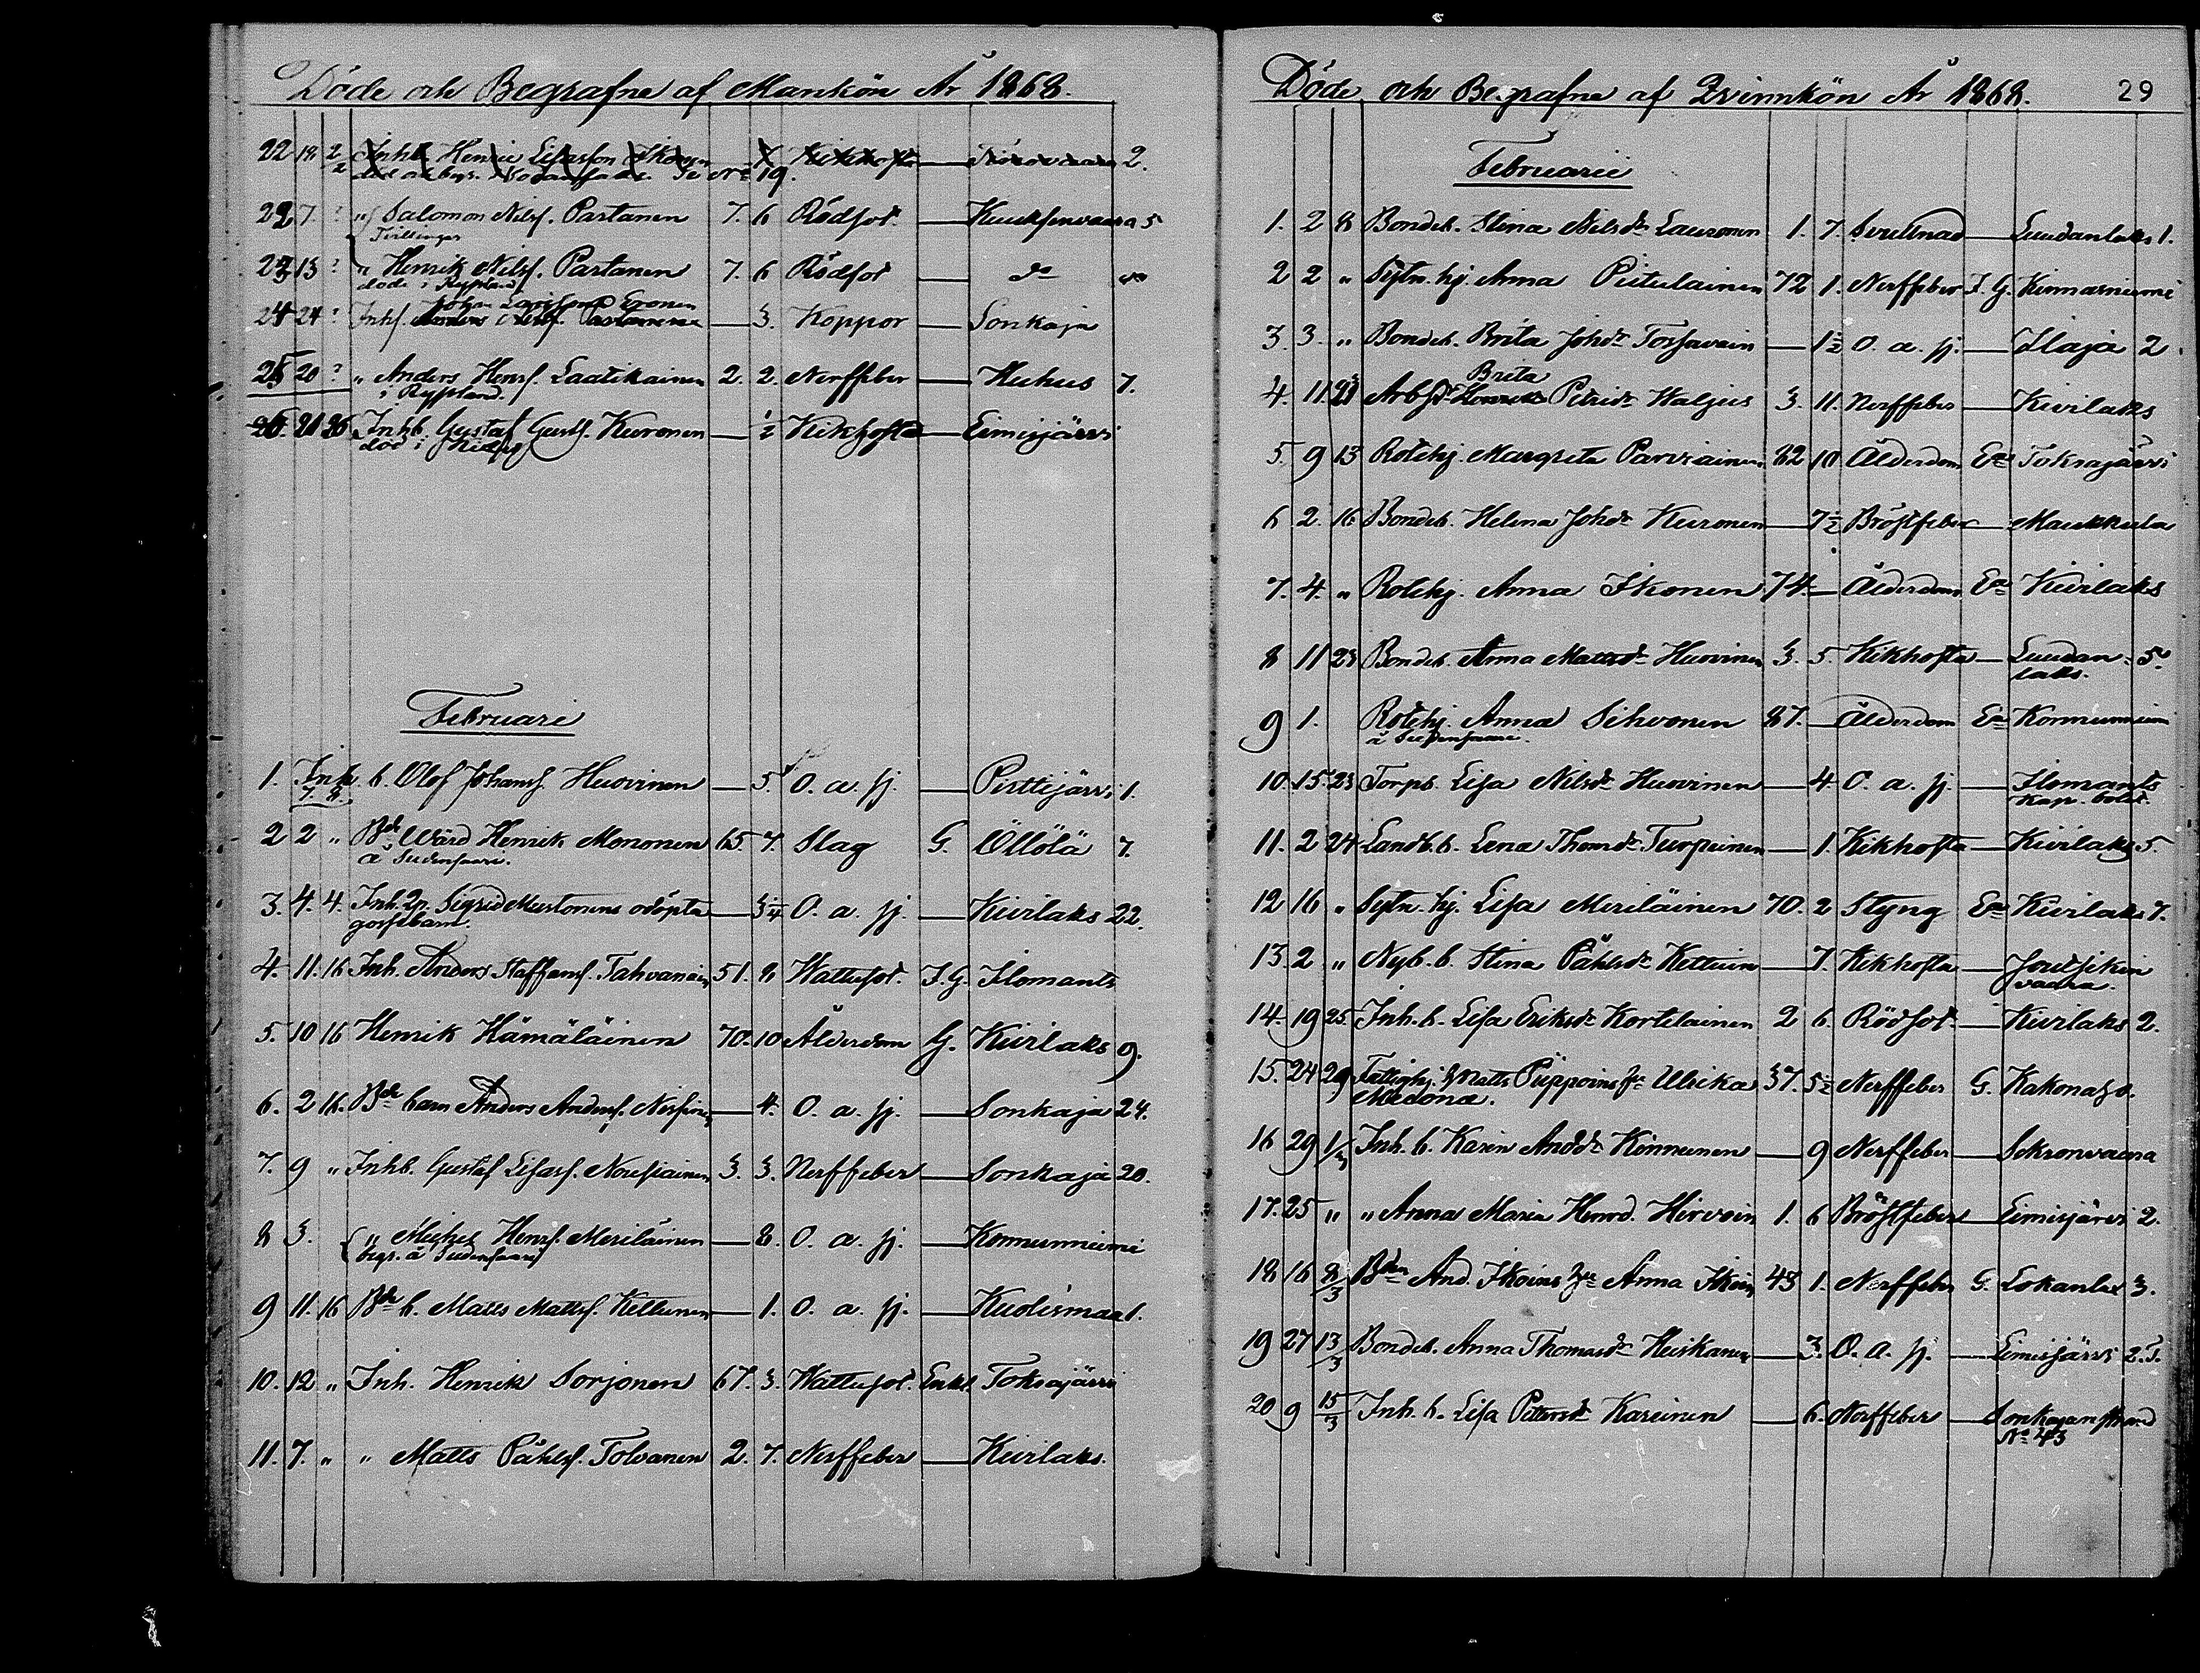 Döde och Begrafne af Mankön År 1868.
22 18 2/2 Inhb Henric Lifasson Ikonen Kikhosta 2.
19.
22 7. ? " Salomon Nilss. Partanen 7. 6 Rödsot — Kuuksenvaara 5
Tvillingar
23 13 ? " Henrik Nilss. Partanen 7. 6 Rödsot — do do
döde i Ryssland
Johan Eronen
24 24 ? Inhs. — 3. Koppor — Sonkaja
25 20 ? " Anders Henrs. Laatikainen 2. 2. Nerffeber — Huhus 7.
i Ryssland.
26. 21 26 Inhb. Gustaf Gusts. Kuronen — 1/2 Kikhosta — Eimisjärvi
död i
Februari
1. Inh. b. Olof Johans. Huovinen — 5 O. a. sj. — Pisttijärvi 1.
7. 8.
2 2 " Bde Wärd Henrik Mononen 65 7. Slag G. Öllölä 7.
å
3. 4. 4. Inh. Sigrid Mustonens odöpta — 3/4 O. a. sj. — Kivilaks 22.
gossebarn.
4. 11. 16 Inh. Anders Staffans. Tahvanain 51. 8 Wattusot. I.G. Ilomants
5. 10 16 Henrik Hämäläinen 70. 10 Ålderdom G. Kivilaks 9.
6. 2 16. Bde barn Anders Anders. — 4. O. a. sj. — Sonkaja 24.
7. 9 " Inhb. Gustaf Lisas. Nousiainen 3. 3. Nerffeber — Sonkaja 20.
8 3. " Michel Henrs. Meriläinen — 8. O. a. sj. — Konnunniemi
begr. å
9 11. 16 Bde b. Matts Matts. Kettunen — 1. O. a. sj. — Kuolismaa 1.
10. 12 " Inh. Henrik Sorjonen 67. 3. Wattusot. Enkl. Toksajärvi
11. 7. " " Matts Påhls. Tolvanen 2. 7. Nerffeber — Kivilaks.
Döde och Begrafne af Qvinnkön År 1868. 29
Februarii
1. 2 8 Bondeb. Stina Nilsdr Lauronen 1. 7. Svullnad — Luudanlaks 1.
2 2 " Sytn. hj. Anna Piitulainen 72 1. Nerffeber I. G. Kinnasniemi
3. 3. " Bondeb. Brita Johdr Tossavain — 1 1/2 O. a. sj. — Ilaja 2
Brita
4. 11 Arbs. Petridr Haljus 3. 11. Nerffeber — Kivilaks
5. 9 13 Rotehj. Margreta Parviainen 82 10 Ålderdom Ea Toksajärvi
6 2. 16 Bondeb. Helena Johdr Kuronen — 7 1/2 Bröstfeber — Maukkula
7. 4. " Rotehj. Anna Ikonen 74 — Ålderdom Ea Kivilaks
8 11 23 Bondeb. Anna Mattsdr Huovinen 3. 5. Kikhosta — Luudan- 5.
laks.
9 1. Rotehj. Anna Sihvonen 87. — Ålderdom Ea Konnunniemi
å
10. 15. 23 Torpb. Lisa Nilsdr Huovinen — 4 O. a. sj. — Ilomants
Kap. bolst.
11. 2 24 Landb. b. Lena Thomdr Turpeinen — 1. Kikhosta — Kivilaks 5.
12 16 " Sytn. hj. Lisa Meriläinen 70. 2 Styng Ea Kivilaks 7.
13. 2 " Nyb. b. Stina Påhlsdr Kettuin — 7. Kikhosta —
vaara.
14. 19 25. Inh. b. Lisa Eriksdr Kortelainen 2 6. Rödsot — Kivilaks 2.
15. 24 29 Fattighj. Matts Piippoins Hu Ulrika 37. 5 1/2 Nerffeber G. Kakonaho.
16 29 1/3 Inh. b. Karin Anddr Kinnunen — 9 Nerffeber — Sokronvaara
17. 25 " " Anna Maria Henrd. Hirvoin 1. 6 Bröstfeber — Eimisjärvi 2.
18 16 8/3 Bden And. Ikoins Hu Anna Ikoin 43 1. Nerffeber G. 3.
19 27 13/3 Bondeb. Anna Thomasdr Heiskanen — 3. O. a. sj. — Eimisjärvi 2. T.
20 9 15/3 Inh. b. Lisa Pettersdr Kareinen — 6. Nerffeber — Sonkajanrand
No 43